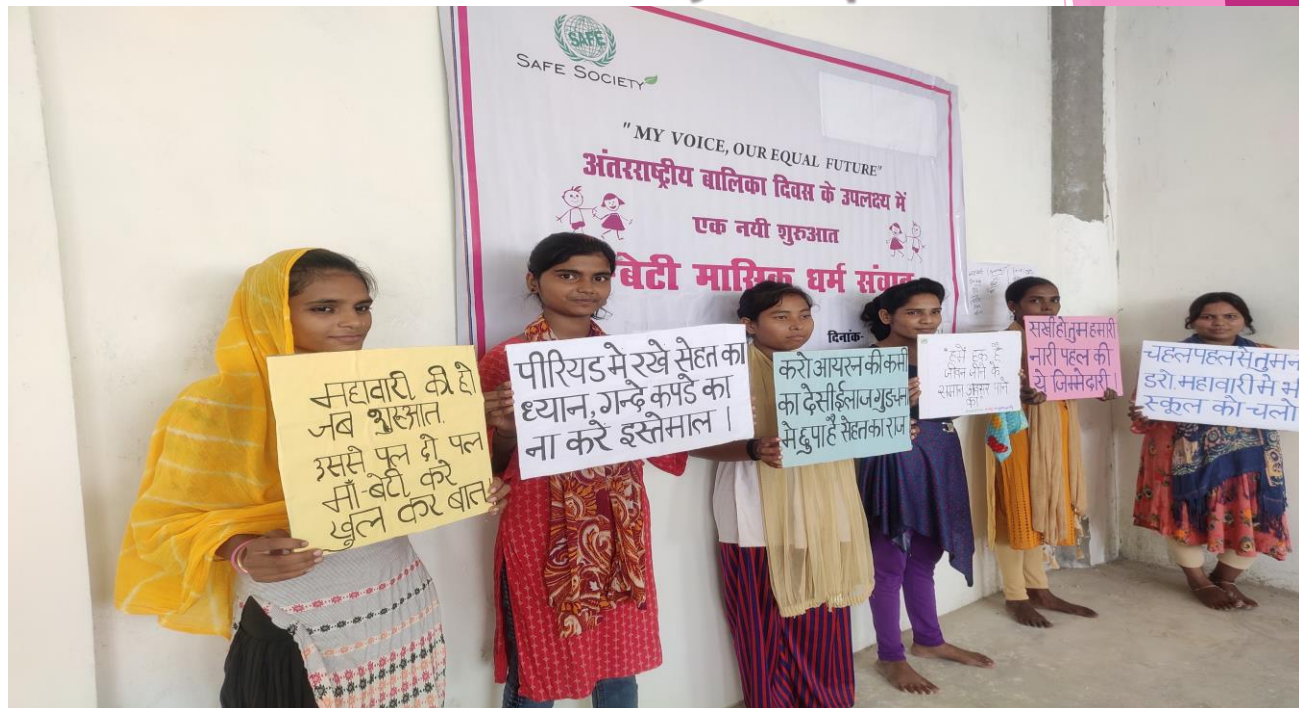 SAFE
SAFE SOCIETY
"MY VOICE, OUR EQUAL FUTURE"
अंतरराष्ट्रीय बालिका दिवस के उपलक्ष्य में
एक नयी शुरुआत
बेटी मासिक धर्म संवाद
दिनांक-
महावारी की हो
जब शुरुआत,
उससे पल दो पल
माँ-बेटी करे
खुल कर बात
पीरियड मे रखे सेहत का
ध्यान, गन्दे कपडे का
ना करे इस्तेमाल ।
करो आयरन की कमी
का देसी ईलाज गुड-चना
मे छुपा है सेहत का राज
हमें हक है
जीवन जीने के
समान अवसर पाने
का
सखी हो तुम हमारी
नारी पहल की
ये जिम्मेदारी ।
चहल पहल से तुम न
डरो, महावारी मे भी
स्कूल को चलो